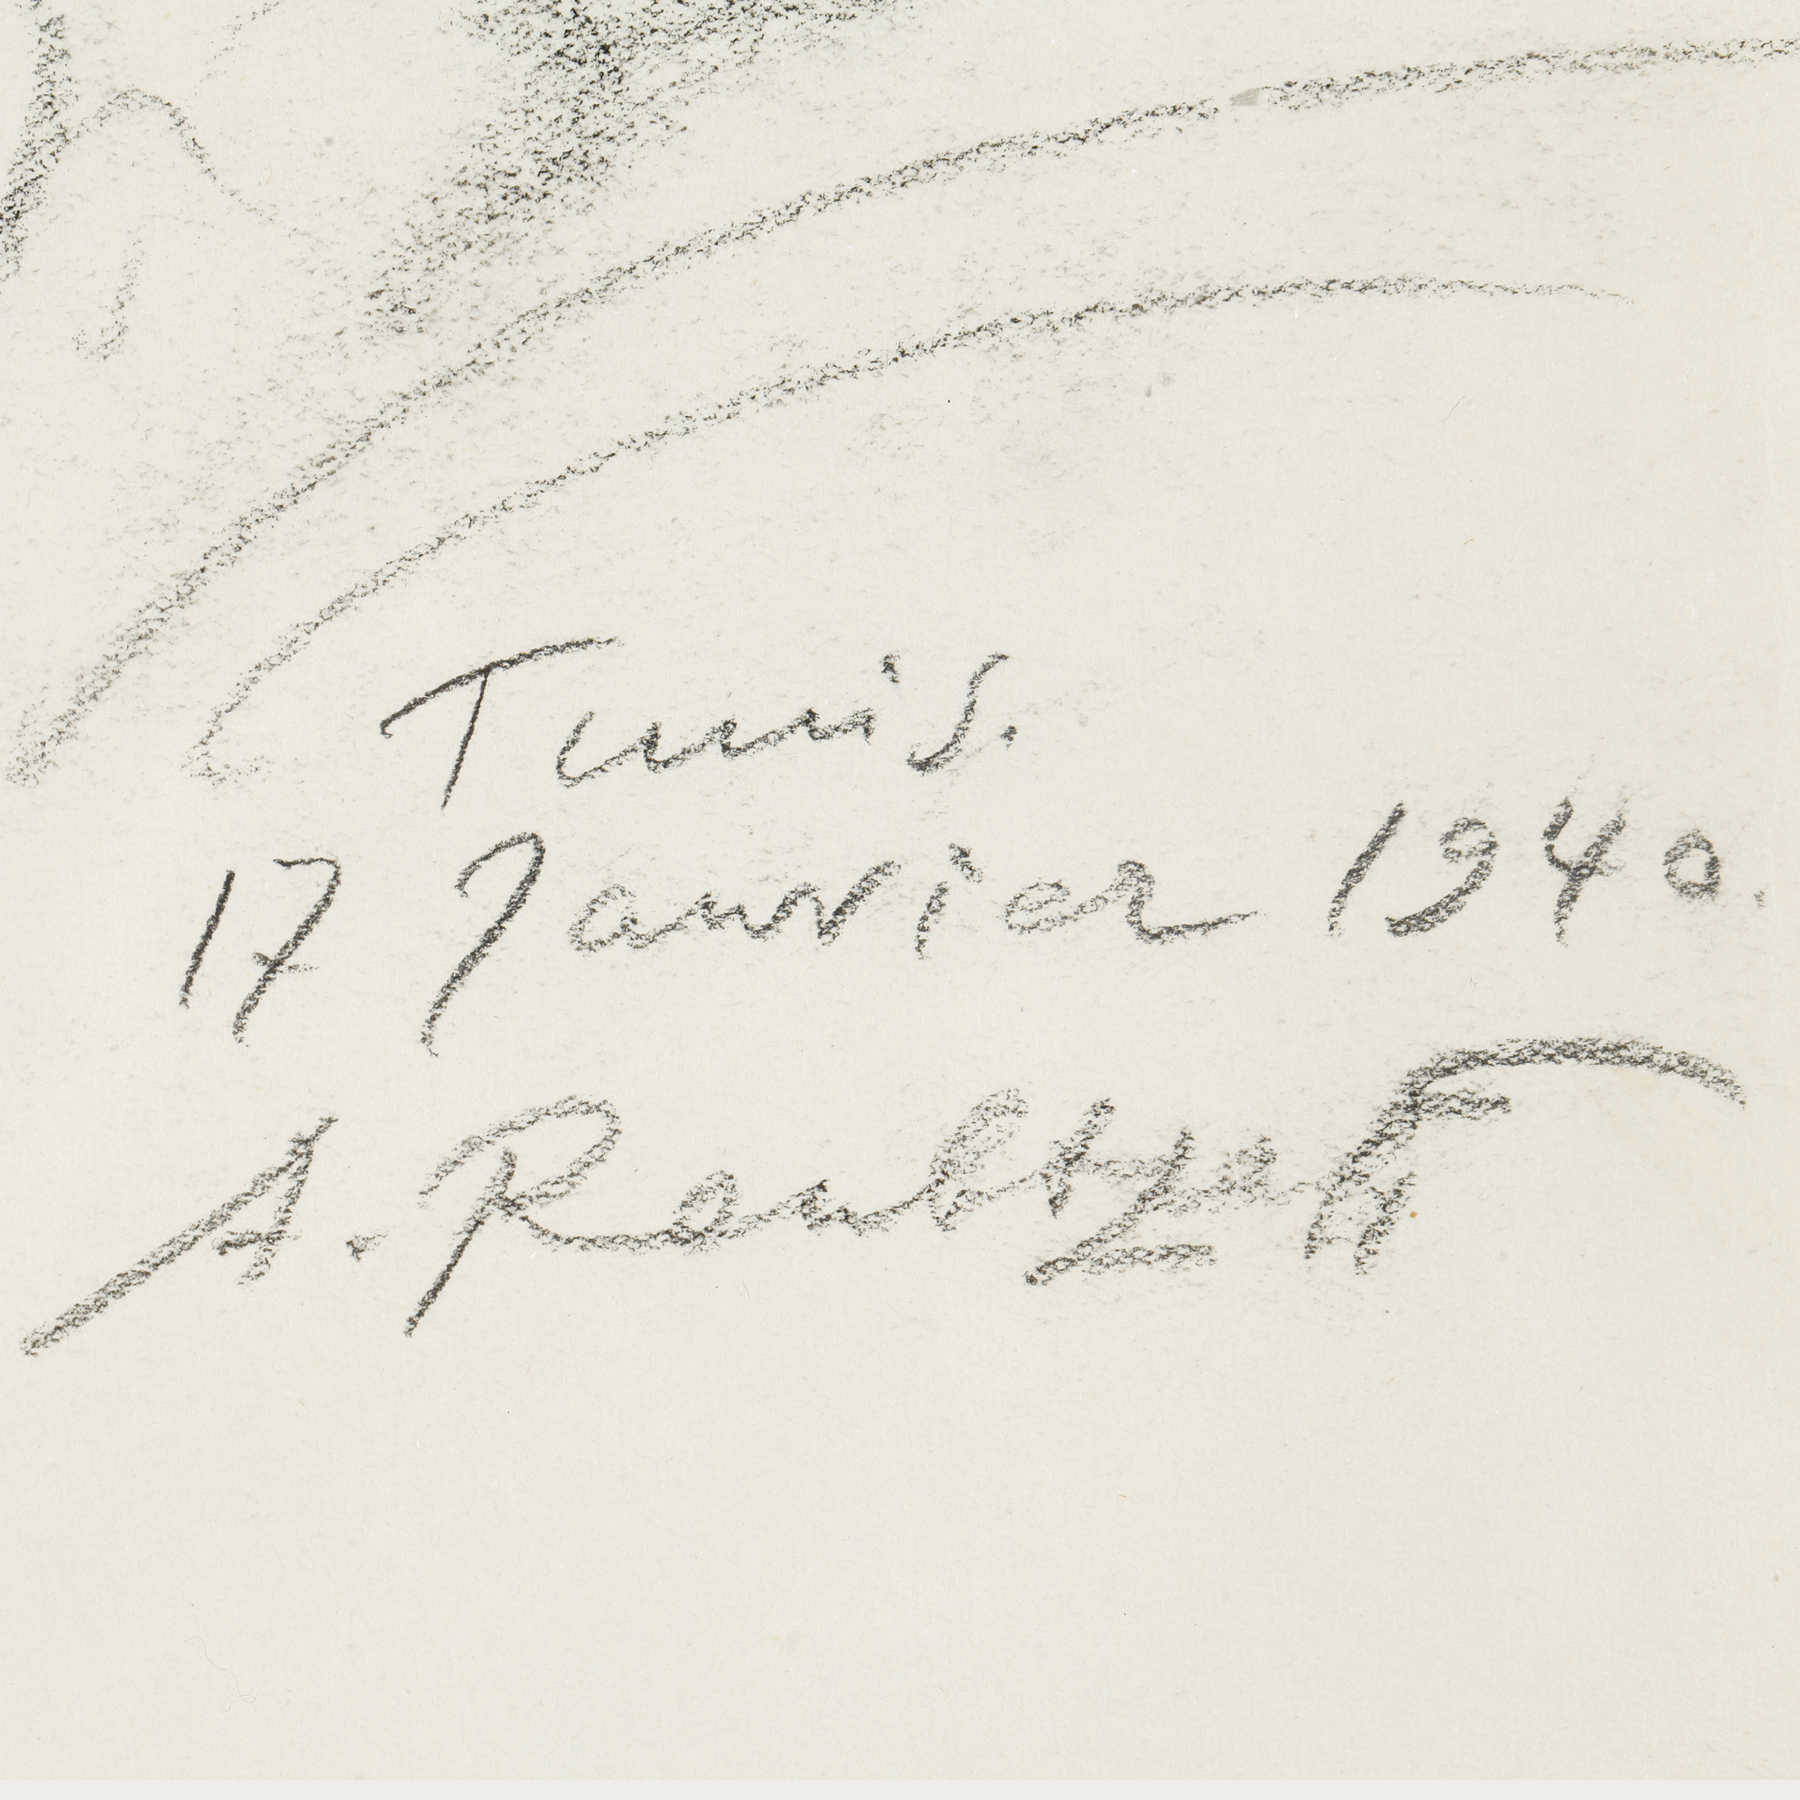 Tunis.
17 Janvier 1940.
A. Roubtzoff